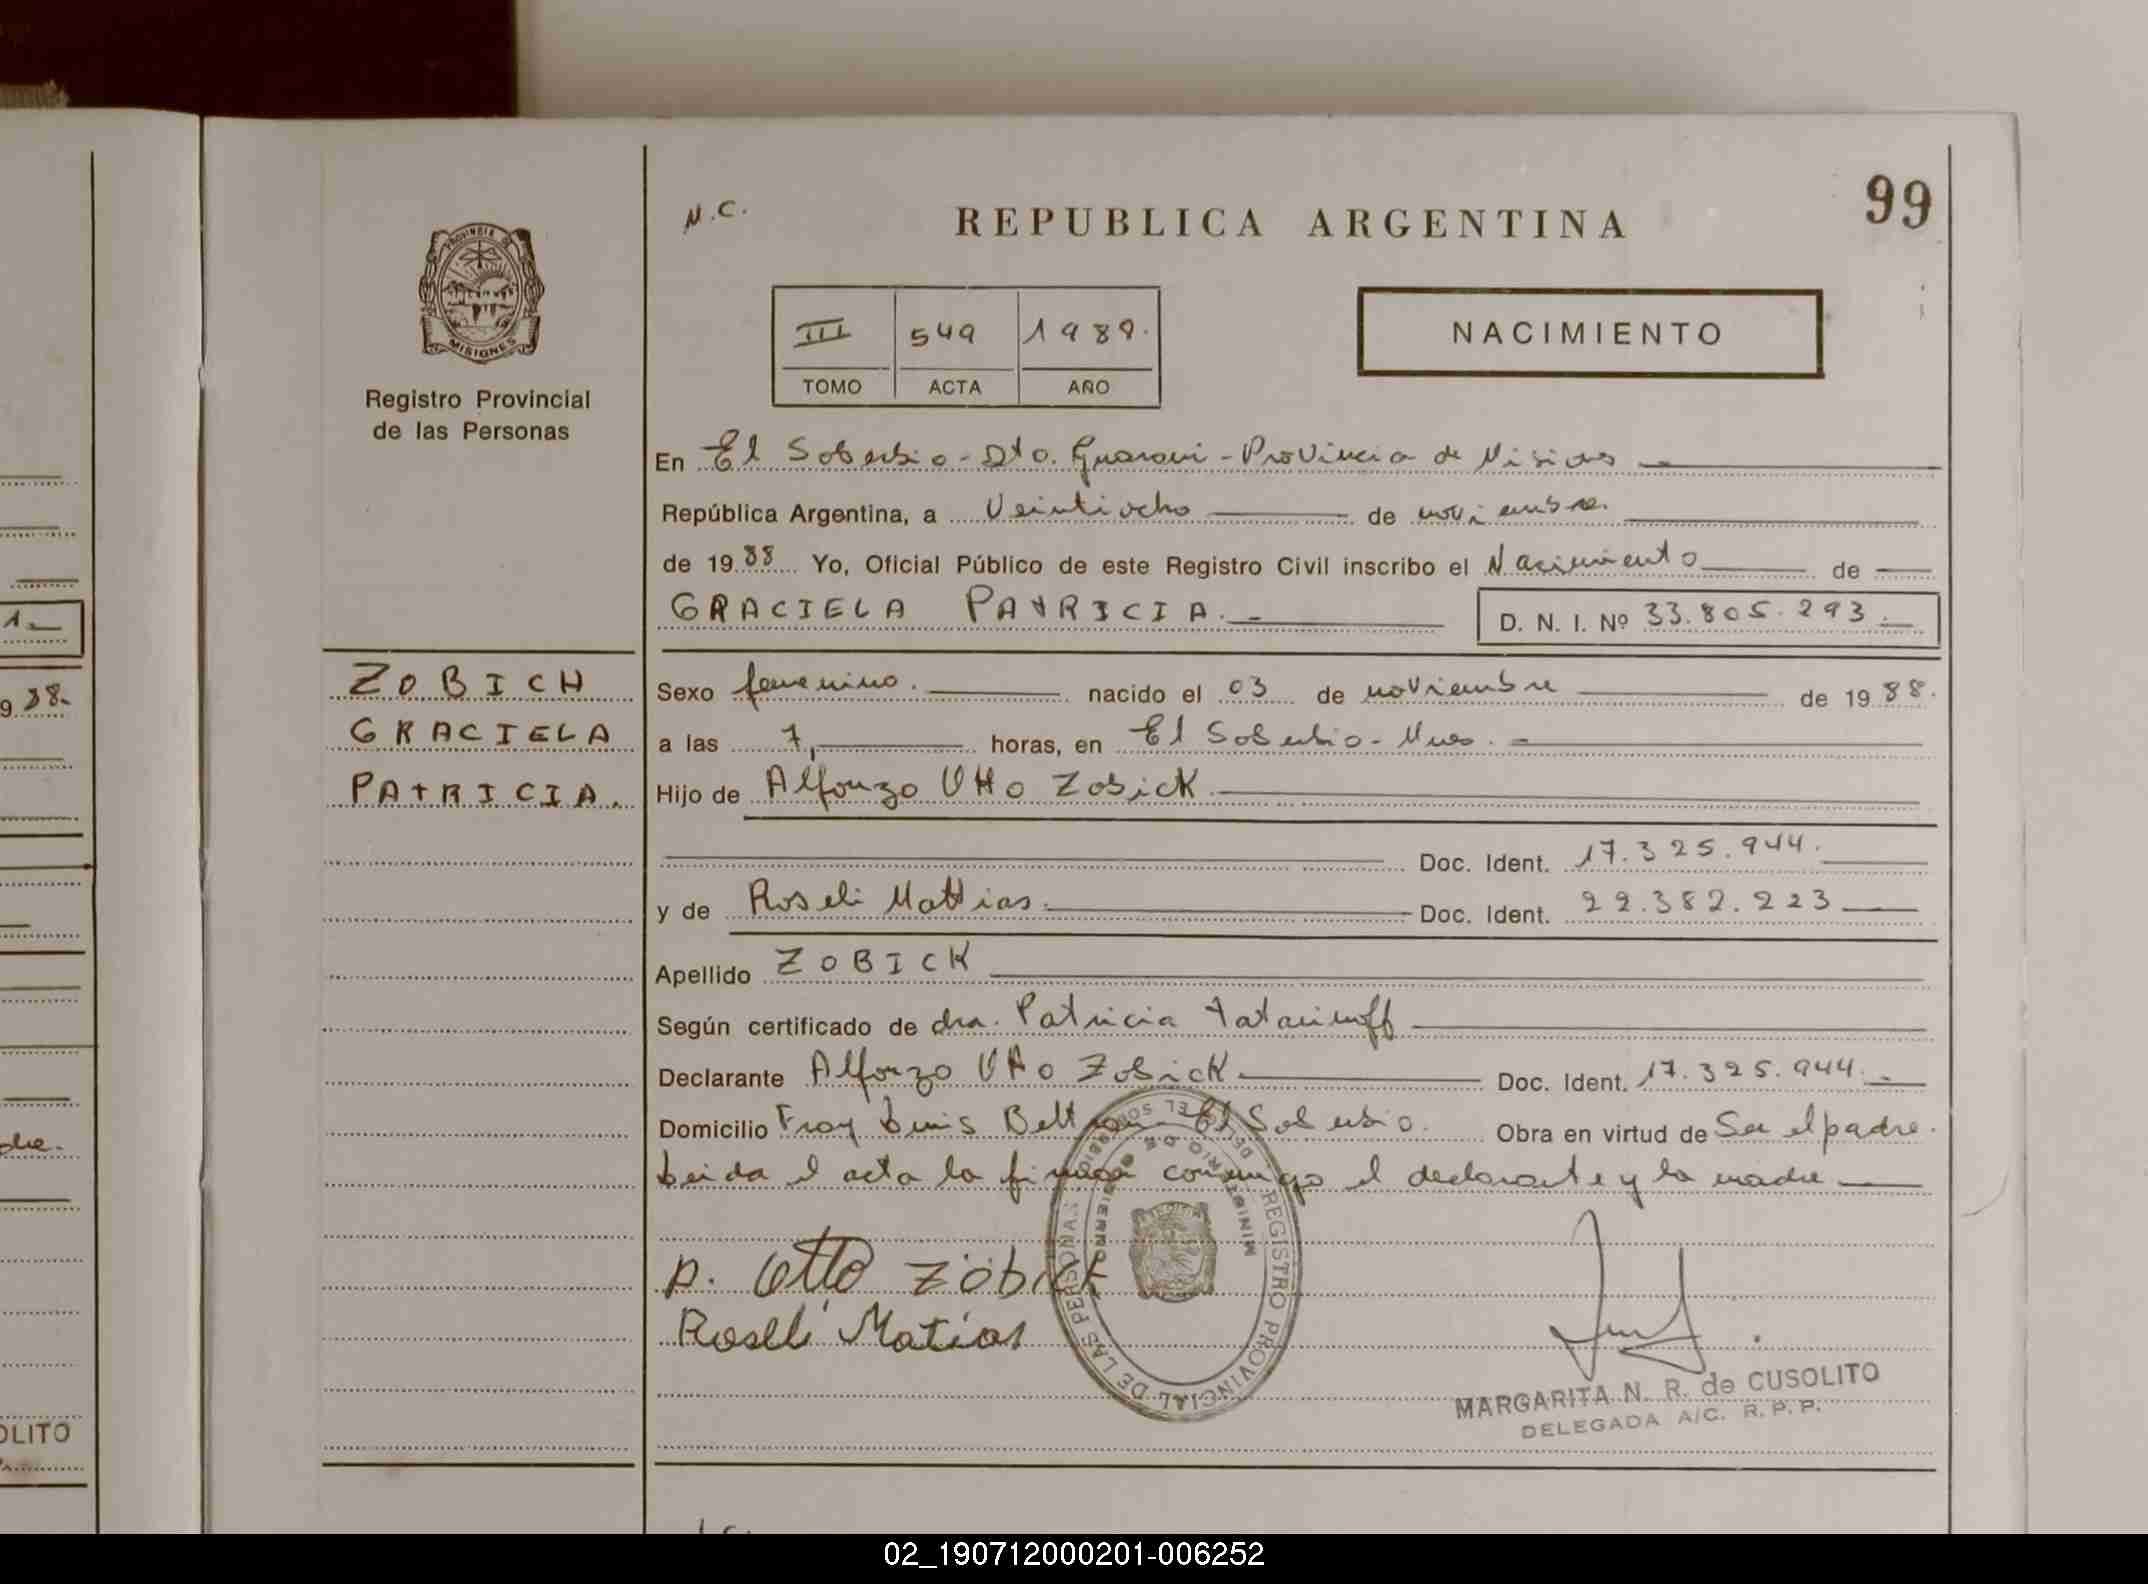 99
N.C.
REPUBLICA ARGENTINA
PROVINCIA DE
MISIONES
Registro Provincial
de las Personas
III 549 1989.
TOMO ACTA AÑO
NACIMIENTO
En El Soberbio - Dto. Guarani - Provincia de Misiones
República Argentina, a Veintiocho de noviembre.
de 1988 Yo, Oficial Público de este Registro Civil inscribo el Nacimiento de
GRACIELA PATRICIA. D. N. I. Nº 33.805.293
ZOBICH
GRACIELA
PATRICIA.
Sexo femenino. nacido el 03 de noviembre de 1988.
a las 7, horas, en El Soberbio - Mnes.
Hijo de Alfonzo Otto Zobick
Doc. Ident. 17.325.944.
y de Roseli Mattias. Doc. Ident. 22.382.223
Apellido ZOBICK
Según certificado de dra. Patricia Tatarinoff
Declarante Alfonzo Otto Zobick Doc. Ident. 17.325.944.
Domicilio Fray Luis Beltran El Soberbio. Obra en virtud de Ser el padre.
Leida el acta la firman conmigo el declarante y la madre
A. Otto Zöbick
Roseli Matias
REGISTRO PROVINCIAL DE LAS PERSONAS
MARGARITA N. R. de CUSOLITO
DELEGADA A/C. R. P. P.
1.-
9 38.
dre.
OLITO
02_190712000201-006252